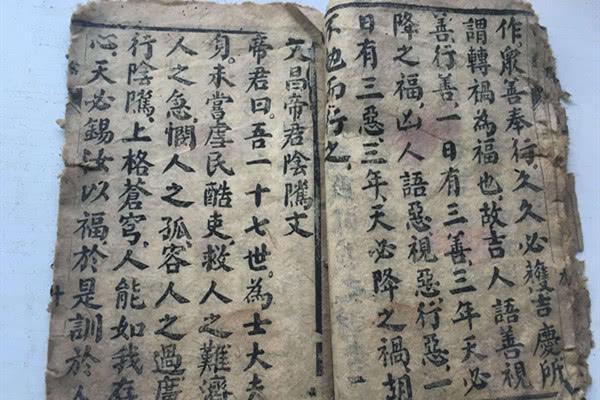 作，眾善奉行，久久必獲吉慶所
謂轉禍為福也故吉人語善視
善行善一日有三善，三年天必
降之福，凶人語惡視惡，行惡，一
日有三惡，三年，天必降之禍，胡
不而行之，
文昌帝君陰騭文
帝君曰。吾一十七世。為士大夫
身。未嘗虐民酷吏，救人之難，濟
人之急，憫人之孤，容人之過，廣
行陰騭，上格蒼穹，人能如我存
心，天必錫汝以福，於是訓於人